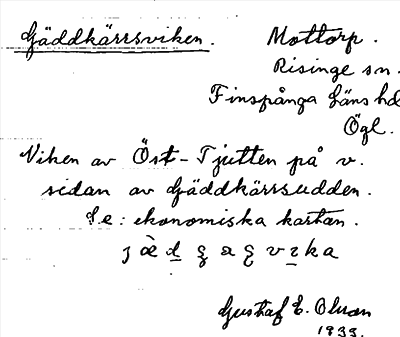 Gäddkärrsviken. Mottorp.
Risinge sn.
Finspånga läns hd
Ögl.
Viken av Öst-Tjutten på v.
sidan av Gäddkärrsudden.
S.e: ekonomiska kartan.
Gustaf E. Olson
1933.